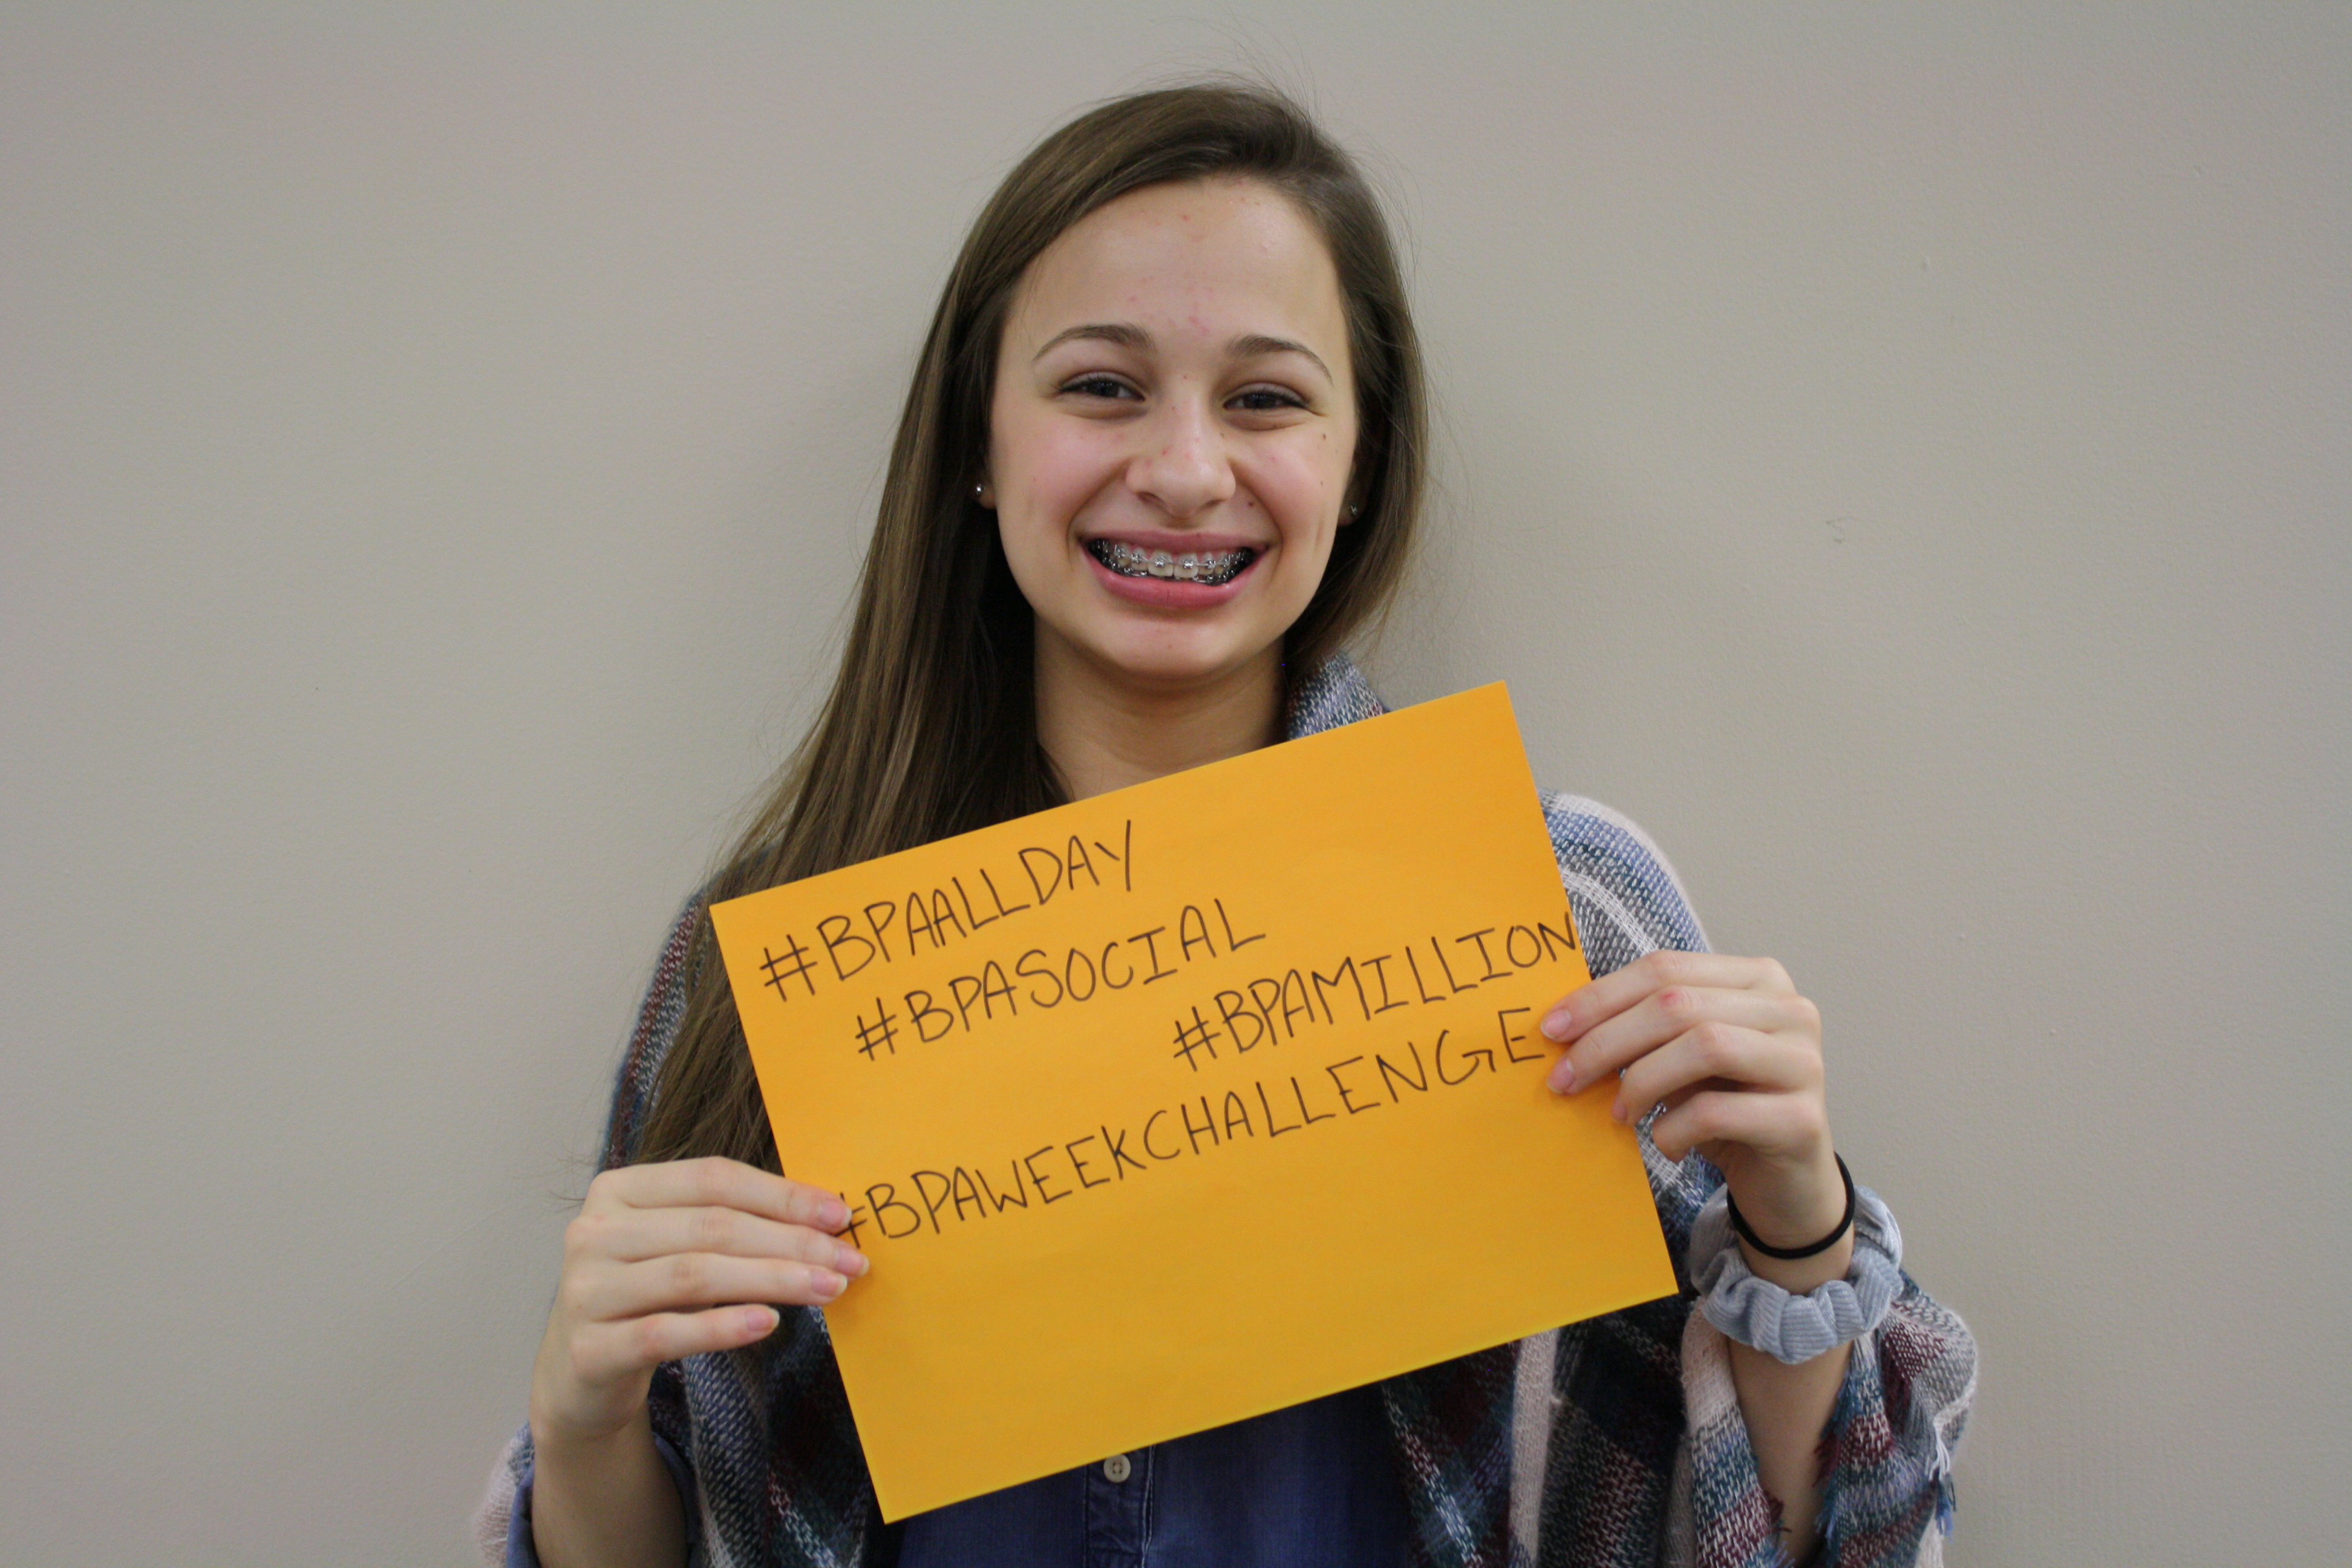 #BPAALLDAY
#BPASOCIAL
#BPAMILLION
#BPAWEEKCHALLENGE